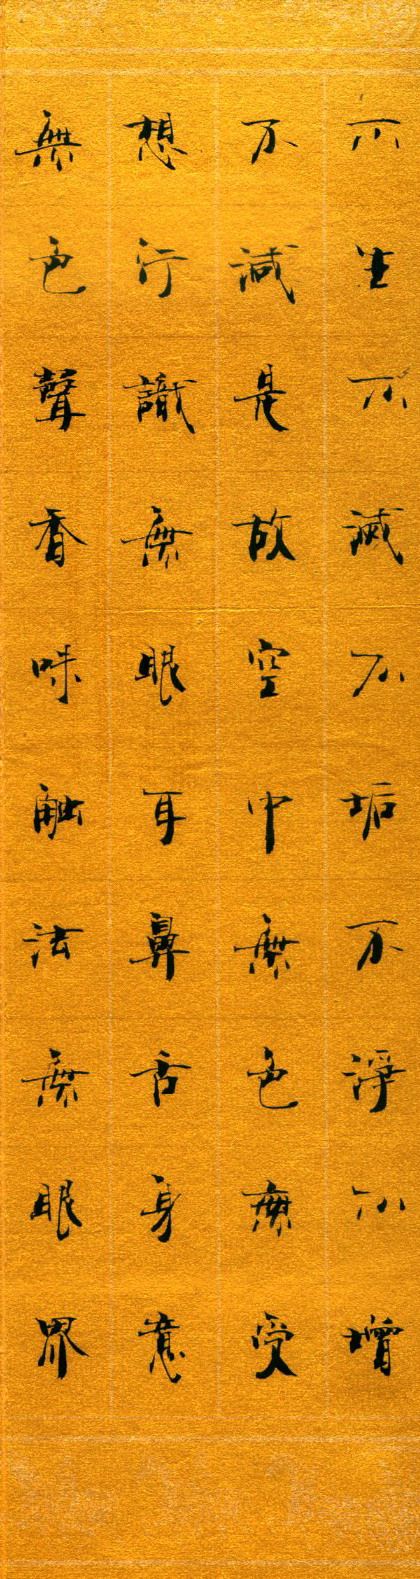 不生不滅不垢不淨不增
不減是故空中無色無受
想行識無眼耳鼻舌身意
無色聲香味觸法無眼界